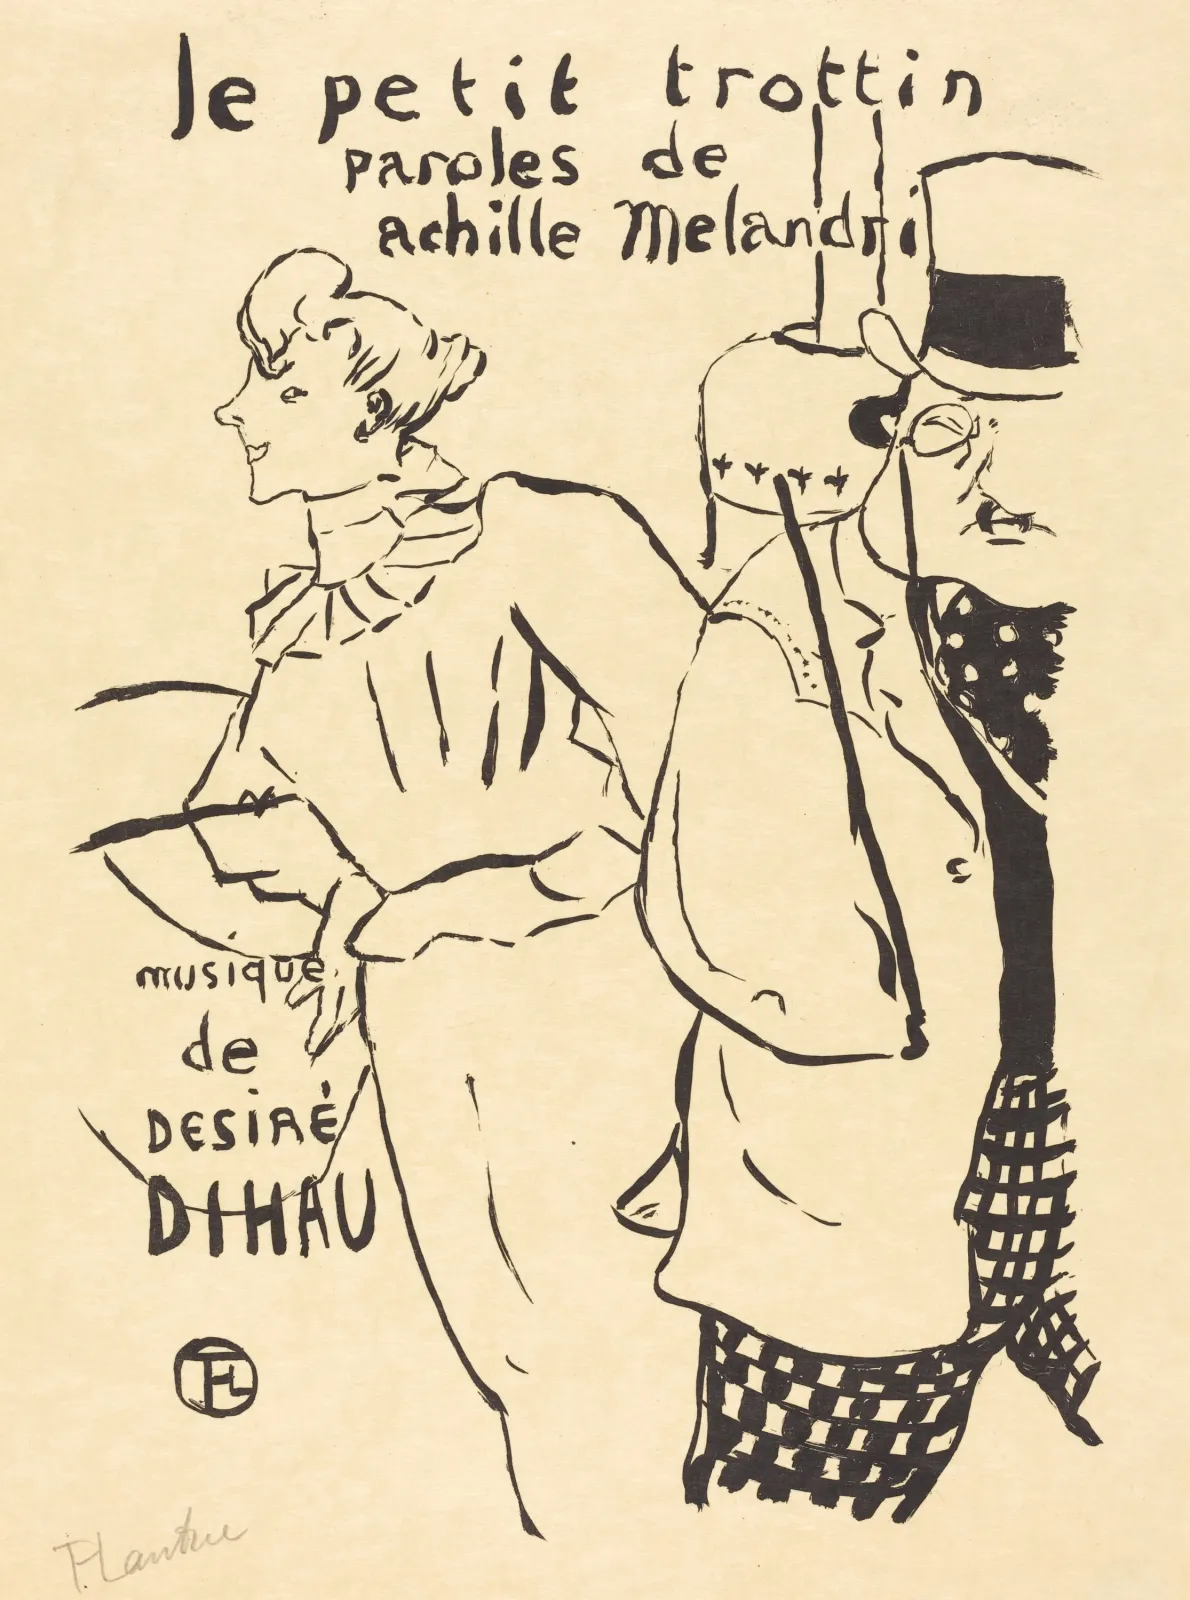 le petit trottin
paroles de
achille Melandri
musique
de
DESIRÉ
DIHAU
HTL
T-Lautrec